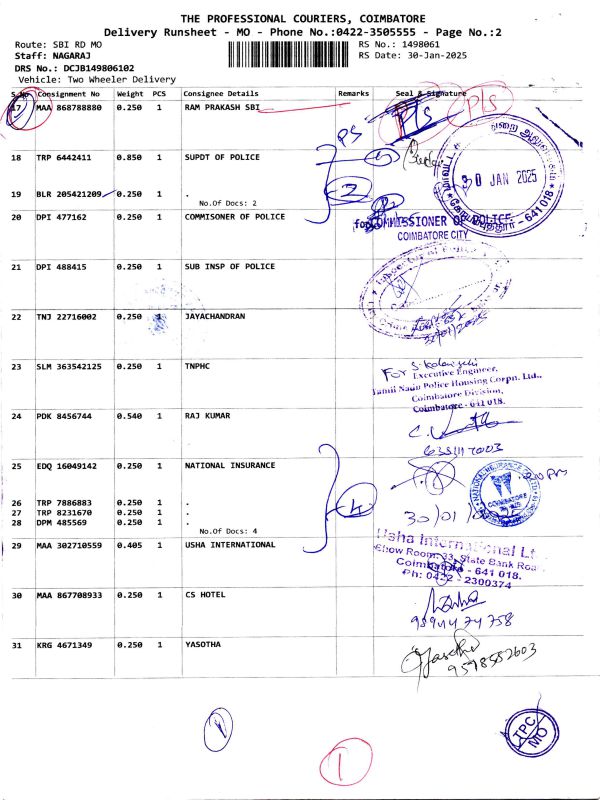 THE PROFESSIONAL COURIERS, COIMBATORE
Delivery Runsheet - MO - Phone No.:0422-3505555 - Page No.:2
Route: SBI RD MO
RS No.: 1498061
Staff: NAGARAJ
RS Date: 30-Jan-2025
DRS No.: DCJB149806102
Vehicle: Two Wheeler Delivery
S.No Consignment No Weight PCS Consignee Details Remarks Seal & Signature
17 MAA 868788880 0.250 1 RAM PRAKASH SBI P/S P/S
PS
18 TRP 6442411 0.850 1 SUPDT OF POLICE
30 JAN 2025
641 018
19 BLR 205421209 0.250 1 . 2
No.Of Docs: 2
20 DPI 477162 0.250 1 COMMISONER OF POLICE
for COMMISSIONER OF POLICE
COIMBATORE CITY
21 DPI 488415 0.250 1 SUB INSP OF POLICE
22 TNJ 22716002 0.250 1 JAYACHANDRAN
23 SLM 363542125 0.250 1 TNPHC
For
Executive Engineer,
Tamil Nadu Police Housing Corpn. Ltd.,
Coimbatore Division,
Coimbatore - 641 018.
24 PDK 8456744 0.540 1 RAJ KUMAR
25 EDQ 16049142 0.250 1 NATIONAL INSURANCE
26 TRP 7886883 0.250 1 .
27 TRP 8231670 0.250 1 .
28 DPM 485569 0.250 1 . 4
No.Of Docs: 4
30/01
COIMBATORE
29 MAA 302710559 0.405 1 USHA INTERNATIONAL
Usha International Lt
Show Room: 33, State Bank Road
Coimbatore - 641 018.
Ph: 0422 - 2300374
30 MAA 867708933 0.250 1 CS HOTEL
31 KRG 4671349 0.250 1 YASOTHA
Yasotha
9578552603
1
TPC
MO